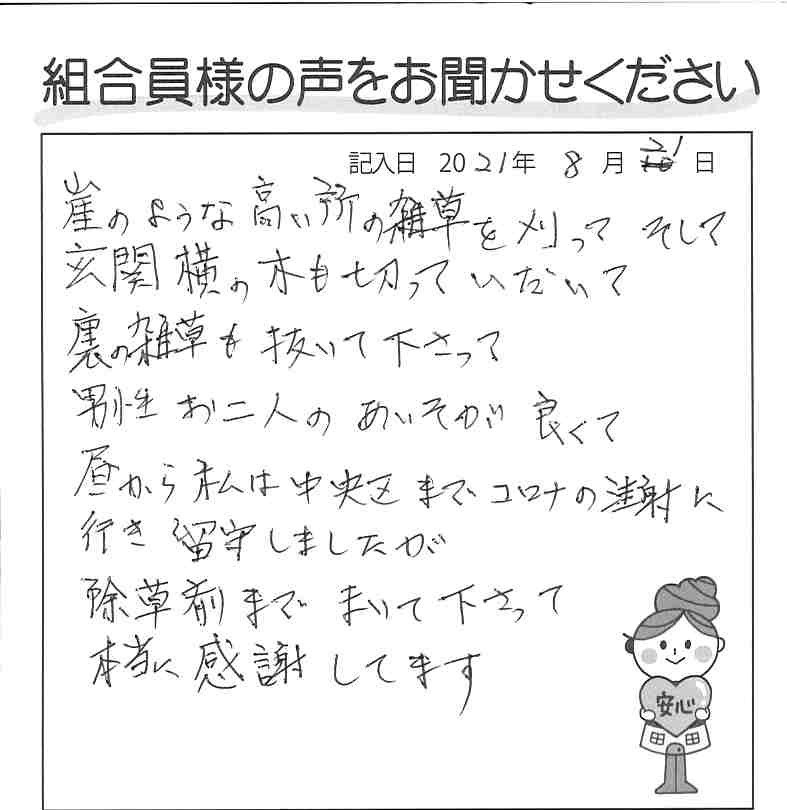 組合員様の声をお聞かせください
記入日 2021年 8月 21日
崖のような高い所の雑草を刈って そして
玄関横の木も切っていただいて
裏の雑草も抜いて下さって
男性お二人のあいそが良くて
昼から私は中央区までコロナの注射に
行き留守しましたが
除草剤までまいて下さって
本当に感謝してます
安心